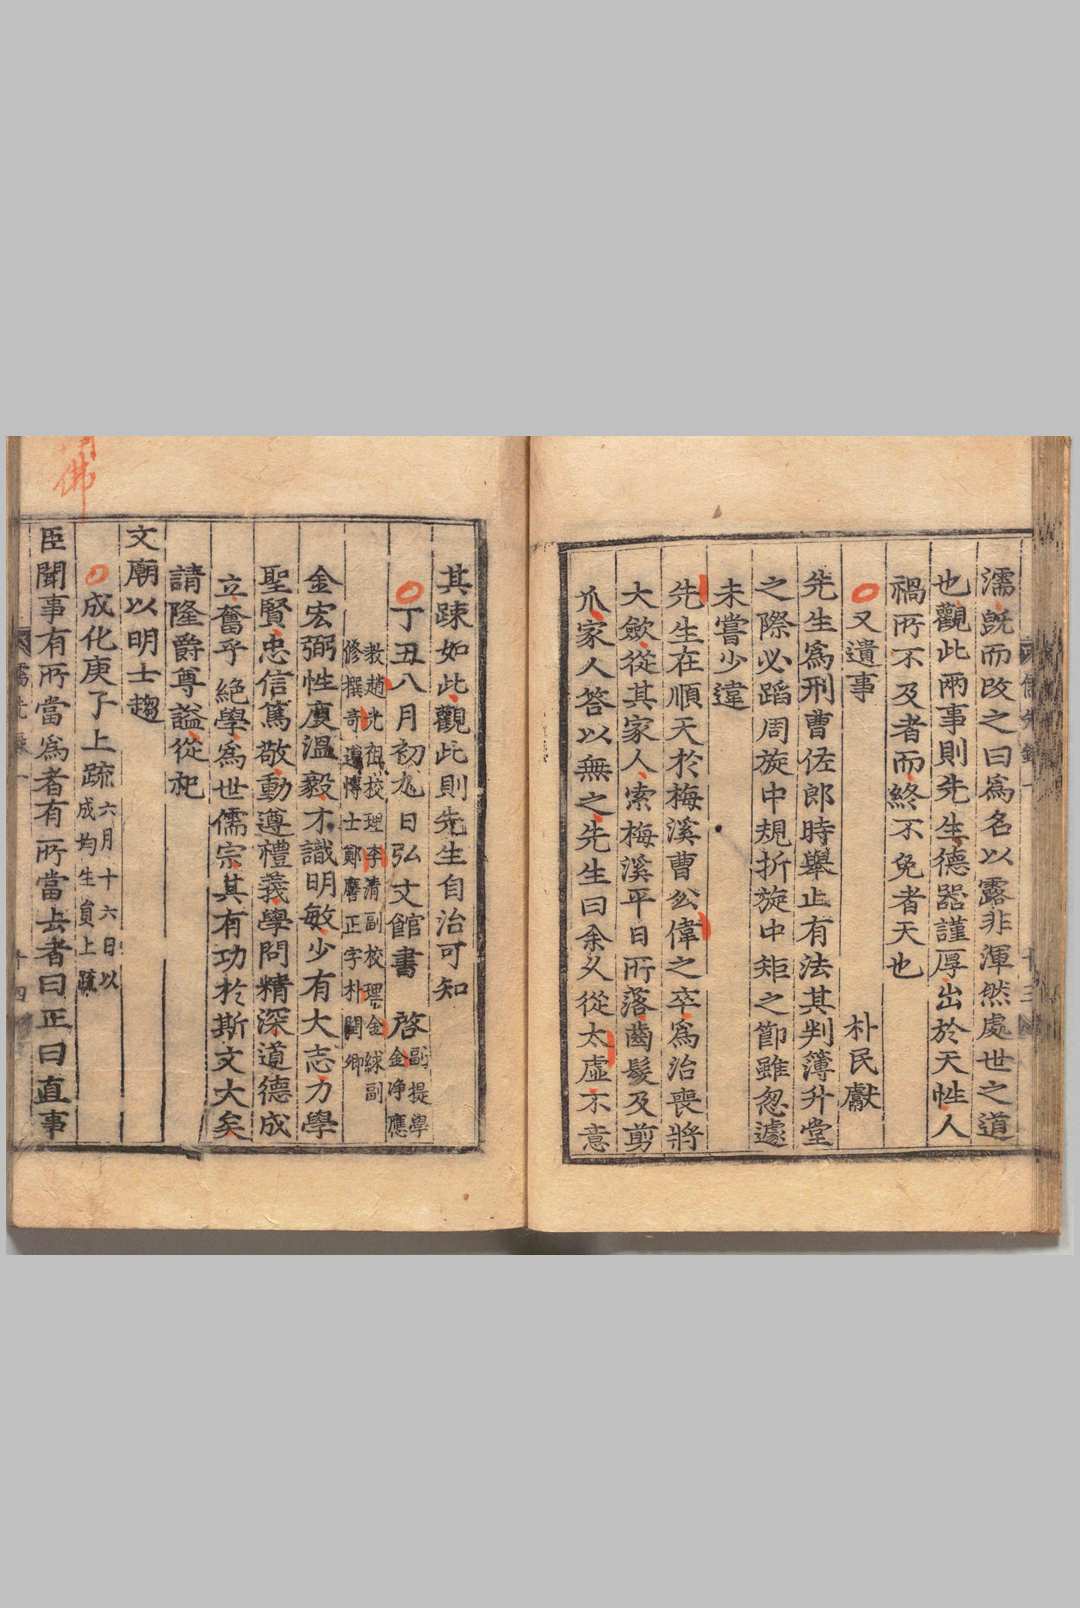 濡旣而改之曰爲名以露非渾然處世之道
也觀此兩事則先生德器謹厚出於天性人
禍所不及者而終不免者天也
又遺事
朴民獻
先生爲刑曹佐郎時擧止有法其判簿升堂
之際必蹈周旋中規折旋中矩之節雖忽遽
未嘗少違
先生在順天於梅溪曹公偉之卒爲治喪將
大斂從其家人索梅溪平日所落齒髮及剪
爪家人答以無之先生曰余久從太虛不意
其踈如此觀此則先生自治可知
丁丑八月初九日弘文館書啓
副提學
金淨應
教趙光祖校理李淸副校理金絿副
修撰奇遵博士鄭譍正字朴閏卿
金宏弼性度溫毅才識明敏少有大志力學
聖賢忠信篤敬動遵禮義學問精深道德成
立奮乎絶學爲世儒宗其有功於斯文大矣
請隆爵尊謚從祀
文廟以明士趨
成化庚子上疏
六月十六日以
成均生員上疏
臣聞事有所當爲者有所當去者曰正曰直事
佛